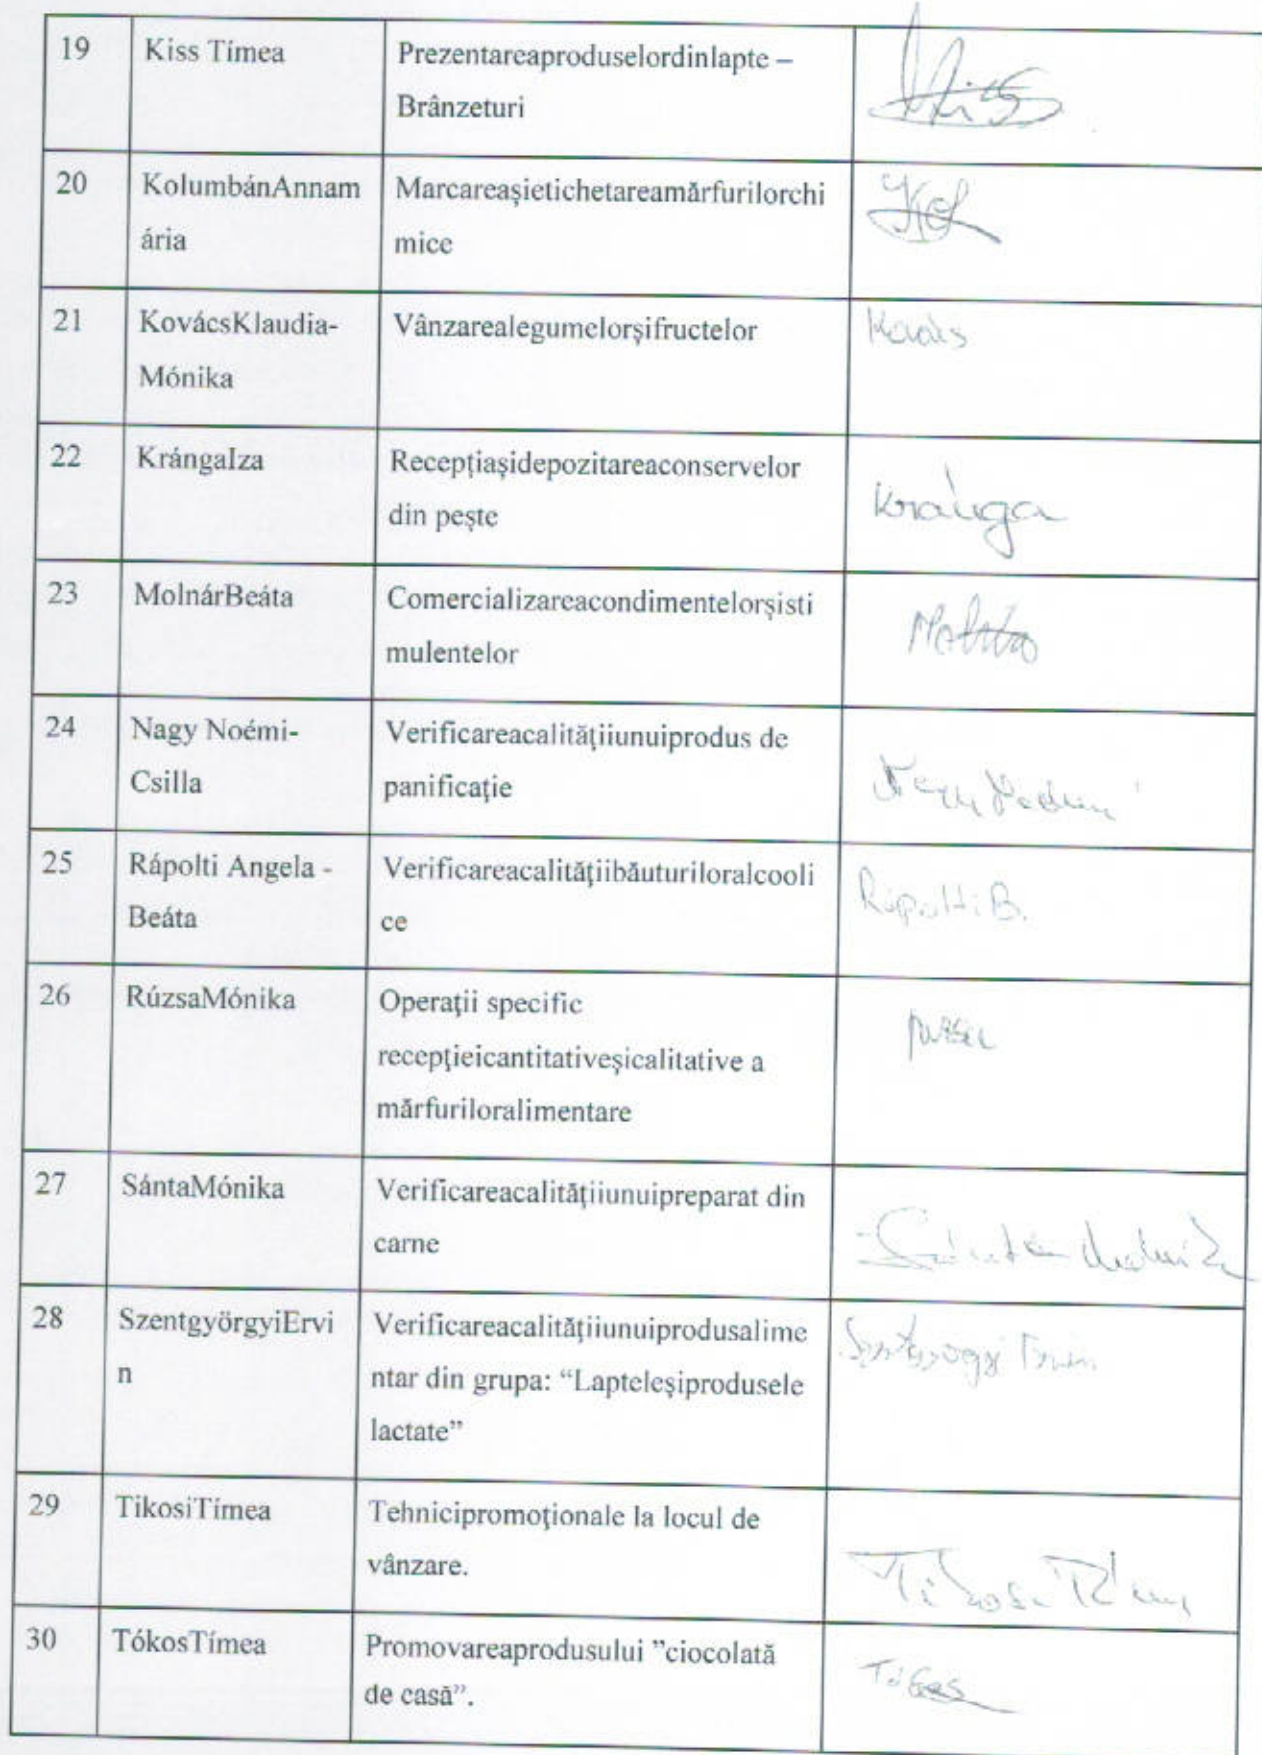 19 Kiss Tímea Prezentareaproduselordinlapte –
Brânzeturi
Kiss
20 KolumbánAnnam Marcareaşietichetareamărfurilorchi
ária mice
Kol
21 KovácsKlaudia- Vânzarealegumelorşifructelor Kovács
Mónika
22 KrángaIza Recepţiaşidepozitareaconservelor
din peşte
Kránga
23 MolnárBeáta Comercializareacondimentelorşisti
mulentelor
24 Nagy Noémi- Verificareacalităţiiunuiprodus de
Csilla panificaţie
Nagy Noémi
25 Rápolti Angela - Verificareacalităţiibăuturiloralcooli
Beáta ce
Rápolti B.
26 RúzsaMónika Operaţii specific
recepţieicantitativeşicalitative a
mărfuriloralimentare
27 SántaMónika Verificareacalităţiiunuipreparat din
carne
Sánta Mónika
28 SzentgyörgyiErvi Verificareacalităţiiunuiprodusalime
n ntar din grupa: “Lapteleşiprodusele
lactate”
29 TikosiTímea Tehnicipromoţionale la locul de
vânzare.
Tikosi Tímea
30 TókosTímea Promovareaprodusului ”ciocolată
de casă”.
Tókos